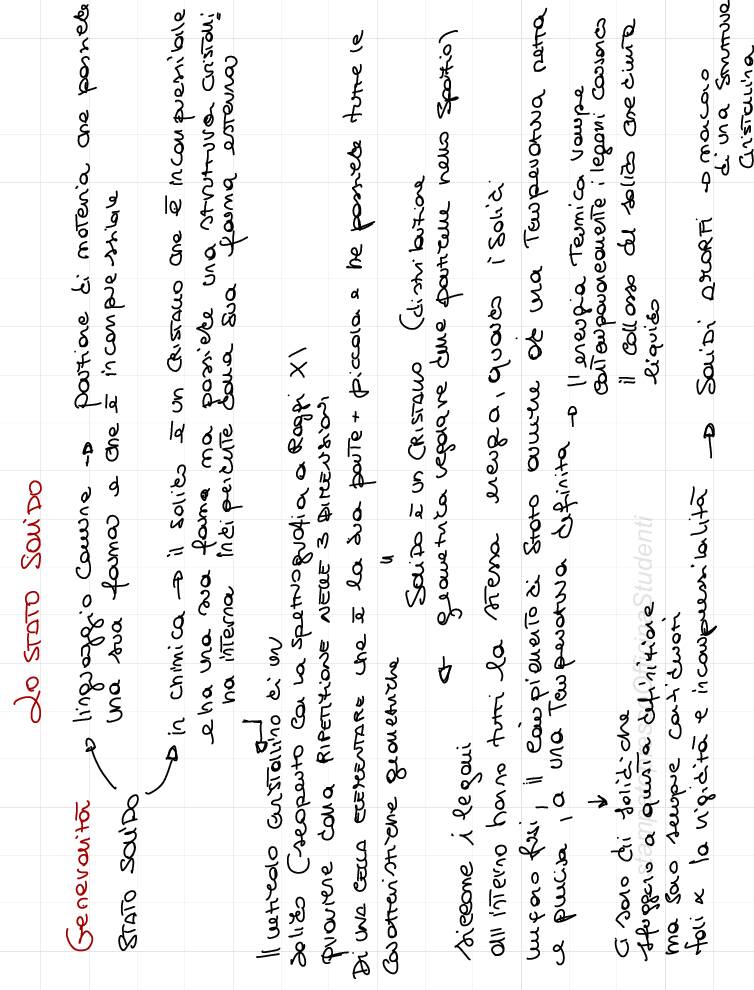 Lo STATO SOLIDO
Generalità
STATO SOLIDO
linguaggio comune → porzione di materia che possiede
una sua forma e che è incompressibile
in chimica → il solido è un CRISTALLO che è incompressibile
e ha una sua forma ma possiede una struttura cristalli=
na interna indipendente dalla sua forma esterna
Il reticolo cristallino di un
solido (scoperto con la spettrografia a Raggi X)
proviene dalla RIPETIZIONE NELLE 3 DIMENSIONI
DI UNA CELLA ELEMENTARE che è la sua parte + piccola e ne possiede tutte le
caratteristiche geometriche
"
SOLIDO È UN CRISTALLO (distribuzione
geometrica regolare delle particelle nello spazio)
siccome i legami
all'interno hanno tutti la stessa energia, quando i solidi
vengono fusi, il cambiamento di stato avviene ad una temperatura netta
e precisa, a una Temperatura definita → Il energia Termica rompe
contemporaneamente i legami causando
il collasso del solido che diventa
liquido
Ci sono di solidi che
sfuggono a questa definizione
ma sono sempre considerati
tali x la rigidità e incompressibilità → SOLIDI AMORFI → mancano
di una struttura
cristallina